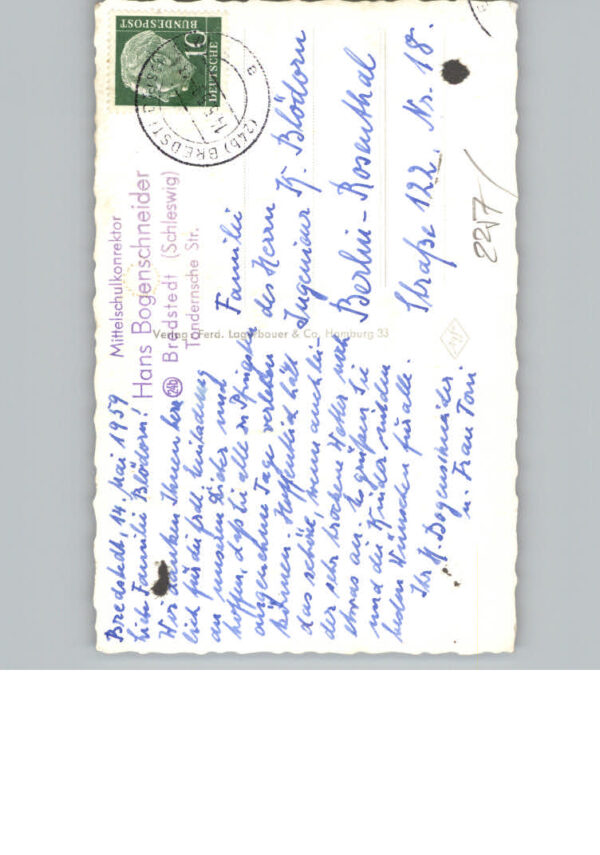 Mittelschulkonrektor
Hans Bogenschneider
(24b) Bredstedt (Schleswig)
Tondernsche Str.
Bredstedt, 14. Mai 1959
Liebe Familie Blödorn!
Wir danken Ihnen herz-
lich für die frdl. Einladung
an unseren Dieter und
hoffen, daß Sie alle zu Pfingsten
angenehme Tage verleben
können. Hoffentlich hält
das schöne, wenn auch lei-
der sehr trockene Wetter noch
etwas an. Es grüßen Sie
und die Kinder mit den
besten Wünschen für alle.
Ihr H. Bogenschneider
u. Frau Toni
Familie
des Herrn
Ingenieur K. Blödorn
Berlin-Rosenthal
Straße 122, Nr. 18.
Verlag Ferd. Lagerbauer & Co. Hamburg 33
DEUTSCHE
BUNDESPOST
10
(24b) BREDSTEDT
2217/